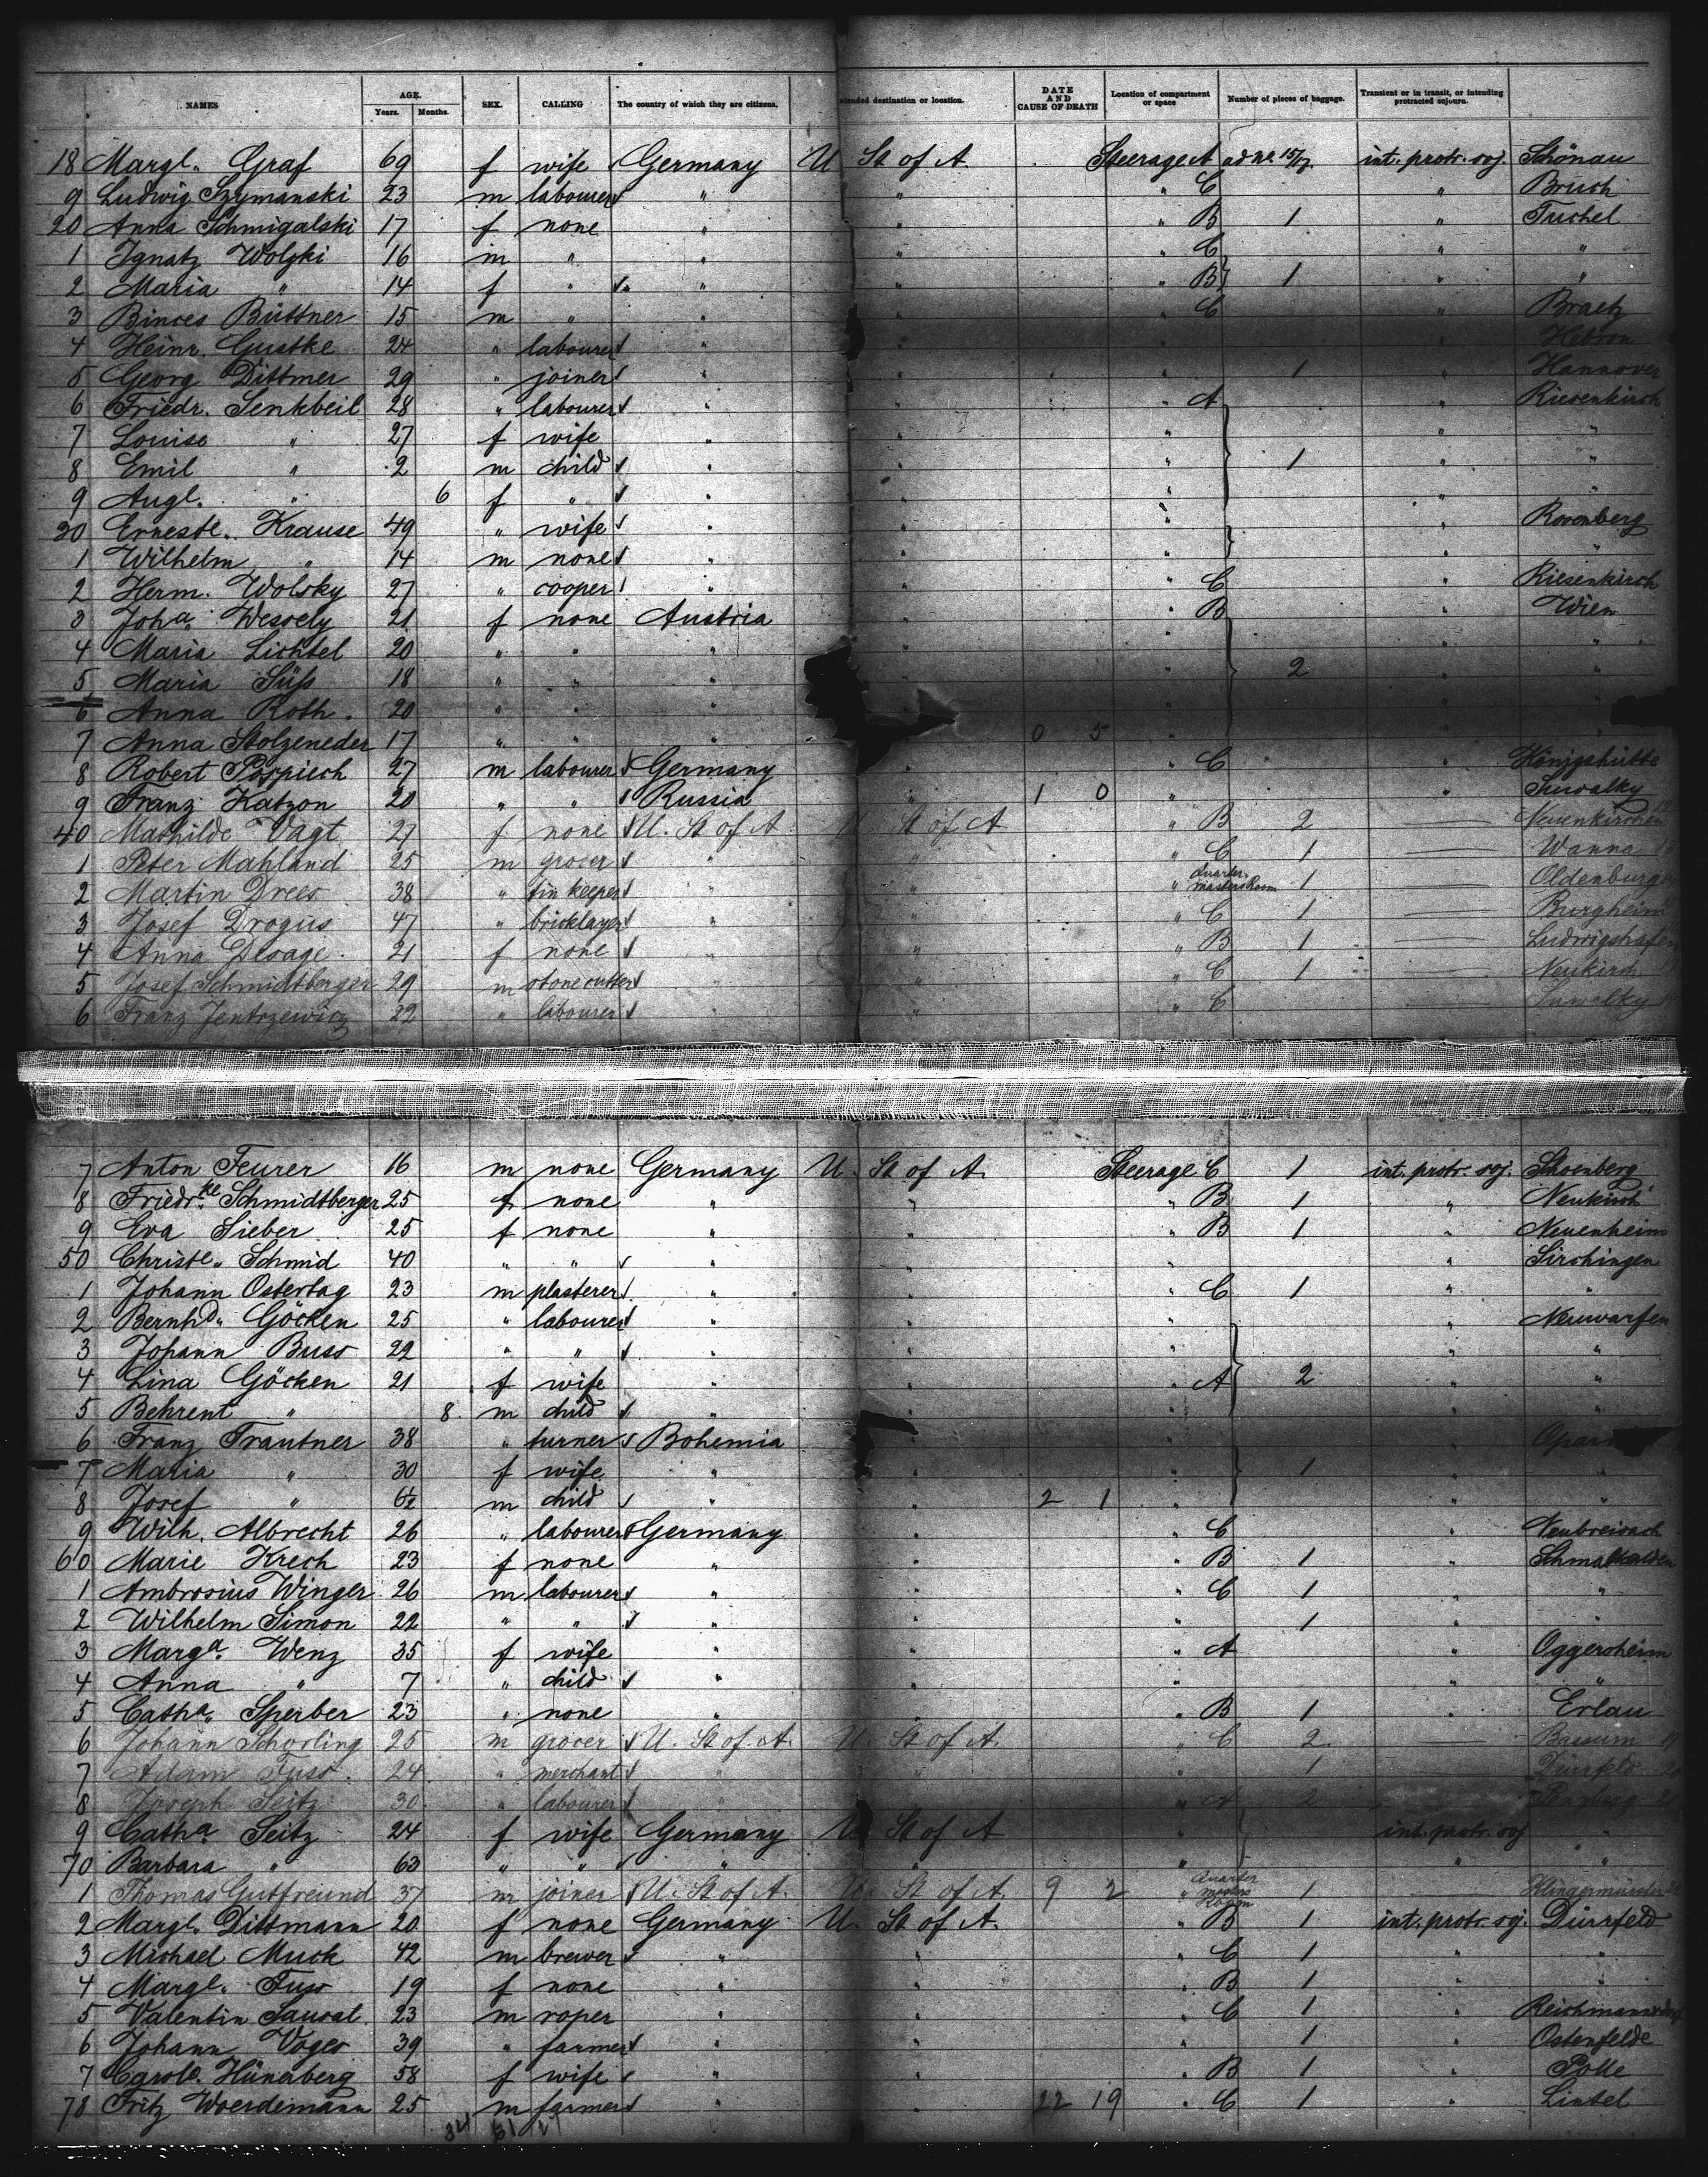 NAMES AGE. Years. Months. SEX. CALLING The country of which they are citizens. Intended destination or location. DATE AND CAUSE OF DEATH Location of compartment or space Number of pieces of baggage. Transient or in transit, or intending protracted sojourn.
18 Margt. Graf 69 f wife Germany U St of A Steerage A int. protr. soj. Schönau
9 Ludwig Szymanski 23 m labourer " " " C " Bruch
20 Anna Schmigalski 17 f none " " " B 1 " Tuchel
1 Ignatz Wolzki 16 m " " " " C " "
2 Maria " 14 f " " " " B 1 " "
3 Büttner 15 m " " " " C " Braetz
4 Heinr. Gustke 24 " labourer " " " " Hebron
5 Georg Dittmer 29 " joiner " " " 1 " Hannover
6 Friedr. Senkbeil 28 " labourer " " " A " Riesenkirch
7 Louise " 27 f wife " " " " "
8 Emil " 2 m child " " " 1 " "
9 Aug. " 6 f " " " " " "
30 Ernest. Krause 49 " wife " " " " Rosenberg
1 Wilhelm " 14 m none " " " " "
2 Herm. Wolsky 27 " cooper " " " C " Riesenkirch
3 Joha. Wessely 21 f none Austria " " B " Wien
4 Maria Lichtel 20 " " " " " " "
5 Maria Süss 18 " " " " 2 " "
6 Anna Roth 20 " " " " "
7 Anna Stolzeneder 17 " " " 0 5 " "
8 Robert Pospiech 27 m labourer Germany " " C " Königshütte
9 Franz Katzon 20 " " Russia " 1 0 " " Suwalky
40 Mathilde Vagt 27 f none U. St of A U St of A " B 2 — Neuenkirchen
1 Peter Mahland 25 m grocer " " " C 1 — Wanna
2 Martin Drees 38 " keeper " " " Quartermasters Room 1 Oldenburg
3 Josef Drogus 47 " bricklayer " " " C 1 — Burgheim
4 Anna Desage 21 f none " " " B 1 — Ludwigshafen
5 Josef Schmidtberger 29 m stonecutter " " " C 1 — Neukirch
6 Franz Jentrzewicz 22 " labourer " " " C — Suwalky
7 Anton Feurer 16 m none Germany U. St of A. Steerage C 1 int. protr. soj. Schoenberg
8 Friedrke. Schmidtberger 25 f none " " " B 1 " Neukirch
9 Eva Sieber 25 f none " " " B 1 " Neuenheim
50 Christe. Schmid 40 " " " " " " Sirchingen
1 Johann Ostertag 23 m plasterer " " " C 1 " "
2 Bernhd. Göcken 25 " labourer " " " " Neuwarfen
3 Johann Buss 22 " " " " " " "
4 Lina Göcken 21 f wife " " " A 2 " "
5 Behrent " 8 m child " " " " "
6 Franz Trautner 38 " turner Bohemia " "
7 Maria " 30 f wife " " " 1 " "
8 Josef " 6½ m child " " 2 1 " " "
9 Wilh. Albrecht 26 " labourer Germany " " C " Neubreisach
60 Marie Krech 23 f none " " " B 1 " Schmalkalden
1 Ambrosius Winger 26 m labourer " " " C 1 " "
2 Wilhelm Simon 22 " " " " " 1 " "
3 Marga. Wenz 35 f wife " " " A " Oggersheim
4 Anna " 7 " child " " " " "
5 Catha. Sperber 23 " none " " " B 1 " Erlau
6 Johann Schorling 25 m grocer U. St of A. U. St of A. " C 2 — Bassum 19
7 Adam Fuss 24 " merchant " " " 1 Dürrfeld
8 Joseph Seitz 30 " labourer " " " A 2
9 Catha. Seitz 24 f wife Germany U St of A " int. protr. soj "
70 Barbara " 63 " " " " " " "
1 Thomas Gutfreund 37 m joiner U. St of A. U. St of A. 9 2 " Quarter masters Room 1 — Klingenmünster
2 Margt. Dittmann 20 f none Germany U. St of A. " B 1 int. protr. soj. Dürrfeld
3 Michael Muck 42 m brewer " " " C 1 " "
4 Margt. Fuss 19 f none " " " B 1 " "
5 Valentin 23 m roper " " " C 1 "
6 Johann Voges 39 " farmer " " " 1 " Ostenfelde
7 Carole. Hünerberg 58 f wife " " " B 1 " Polle
78 Fritz Woerdemann 25 m farmer " " 22 19 " C 1 " Lintel